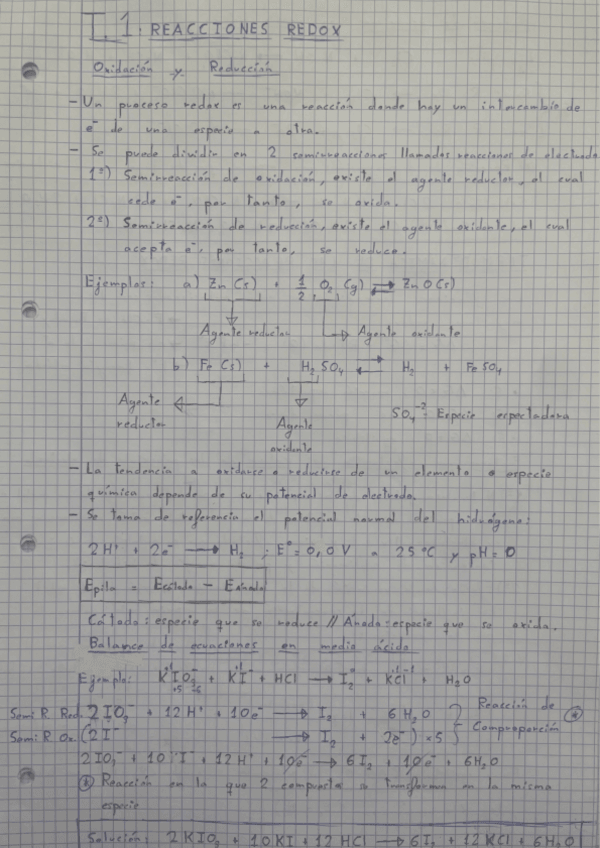 T.1. REACCIONES REDOX
Oxidación y Reducción
- Un proceso redox es una reacción donde hay un intercambio de
e⁻ de una especie a otra.
- Se puede dividir en 2 semirreacciones llamadas reacciones de electrodo
1ª) Semirreacción de oxidación, existe el agente reductor, el cual
cede e⁻, por tanto, se oxida.
2ª) Semirreacción de reducción, existe el agente oxidante, el cual
acepta e⁻, por tanto, se reduce.
Ejemplos: a) Zn(s) + 1/2 O₂ (g) ⇄ ZnO(s)
Agente reductor Agente oxidante
b) Fe(s) + H₂SO₄ ⇄ H₂ + FeSO₄
Agente reductor
Agente oxidante
SO₄⁻²: Especie espectadora
- La tendencia a oxidarse o reducirse de un elemento o especie
química depende de su potencial de electrodo.
- Se toma de referencia el potencial normal del hidrógeno:
2H⁺ + 2e⁻ → H₂ ; E° = 0,0 V a 25 °C y pH = 0
Epila = Ecátodo - Eánodo
Cátodo: especie que se reduce // Ánodo: especie que se oxida.
Balance de ecuaciones en medio ácido
Ejemplo: K⁺¹IO₃⁻ + K⁺¹I⁻ + HCl → I₂⁰ + K⁺¹Cl⁻¹ + H₂O
+5 -6
Semi R. Red. 2IO₃⁻ + 12H⁺ + 10e⁻ → I₂ + 6H₂O
Semi R. Ox. (2I⁻ → I₂ + 2e⁻) ×5
Reacción de
Comproporción *
2IO₃⁻ + 10I⁻ + 12H⁺ + 10e⁻ → 6I₂ + 10e⁻ + 6H₂O
* Reacción en la que 2 compuestos se transforman en la misma
especie
Solución: 2KIO₃ + 10KI + 12HCl → 6I₂ + 12KCl + 6H₂O